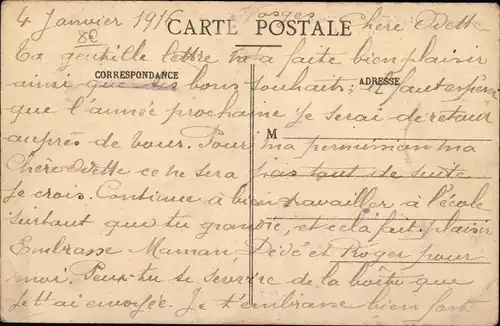 4 Janvier 1916 Vosges Chère Odette
CARTE POSTALE
8e
Ta gentille lettre m'a faite bien plaisir
CORRESPONDANCE
ADRESSE
ainsi que tes bons souhaits; il faut espérer
que l'année prochaine je serai de retour
M
auprès de vous. Pour ma permission ma
Chère Odette ce ne sera pas tout de suite
je crois. Continue à bien travailler à l'école
surtout que tu grandis, et cela fait plaisir
Embrasse Maman, Dédé et Roger pour
moi. Peux-tu se servire de la boîte que
je t'ai envoyée. Je t'embrasse bien fort